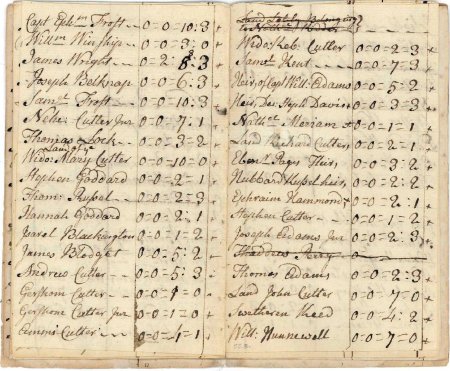 Capt Ephm Frost - 0=0=10:3
Willm Winship - 0=0=3:0
James Wright - 0=2:8:3
Joseph Belknap 0=0=6:3
Saml Frost - - 0=0=10:3
Nehe: Cutter Jur 0=0=7:1
Thomas Lock - - 0=0=3:2
Land of ye
Widor Mary Cutter 0=0=10=0
Stephen Goddard 0=0=2=1
Thams Russel - - 0=0=2=3
Hannah Goddard 0=0=2:1
Isarel Blackington 0=0=1=2
James Blodget 0=0=5:3
Andrew Cutter - 0=0=5:3
Gershom Cutter - - 0=0=7=0
Gershom Cutter Jur 0=0=1=0
Ammi Cutter - - 0=0=4=1
Land Lately Belonging
Wido: Heb: Cutter 0=0=2=3
Saml Kent - - - 0=0=7=3
Heir, of Capt Will: Adams 0=0=5=2
Heir, Den Joseph Davis 0=0=3=3
Nathel: Merriam + 0=0=1=1
Land Richard Cutter 0=0=2=1
Ebenr Heir, 0=0=3:2
Hubbard Russel heir, 0=0=2:2
Ephraim Hammond 0=0=2:1
Stephen Cutter - - 0=0=1=2
Joseph Adams Jur 0=0=2:3
Thaddeus Perry
Thomas Adams 0=0=2=3
Land John Cutter 0=0=7=0
Swetheren Reed 0=0=4:2
Will: Hunnewell 0=0=7=0